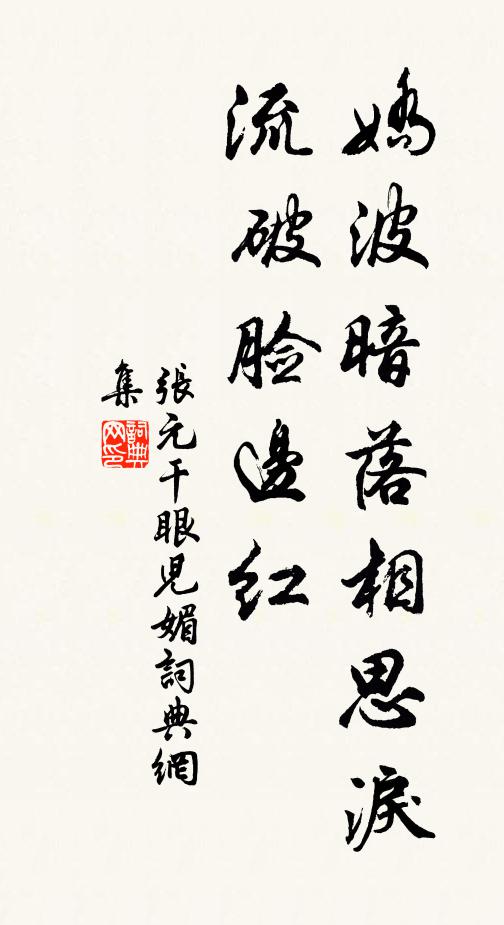 嬌波暗落相思淚
流破臉邊紅
張元干眼児媚詞典網
集
詞典
网印